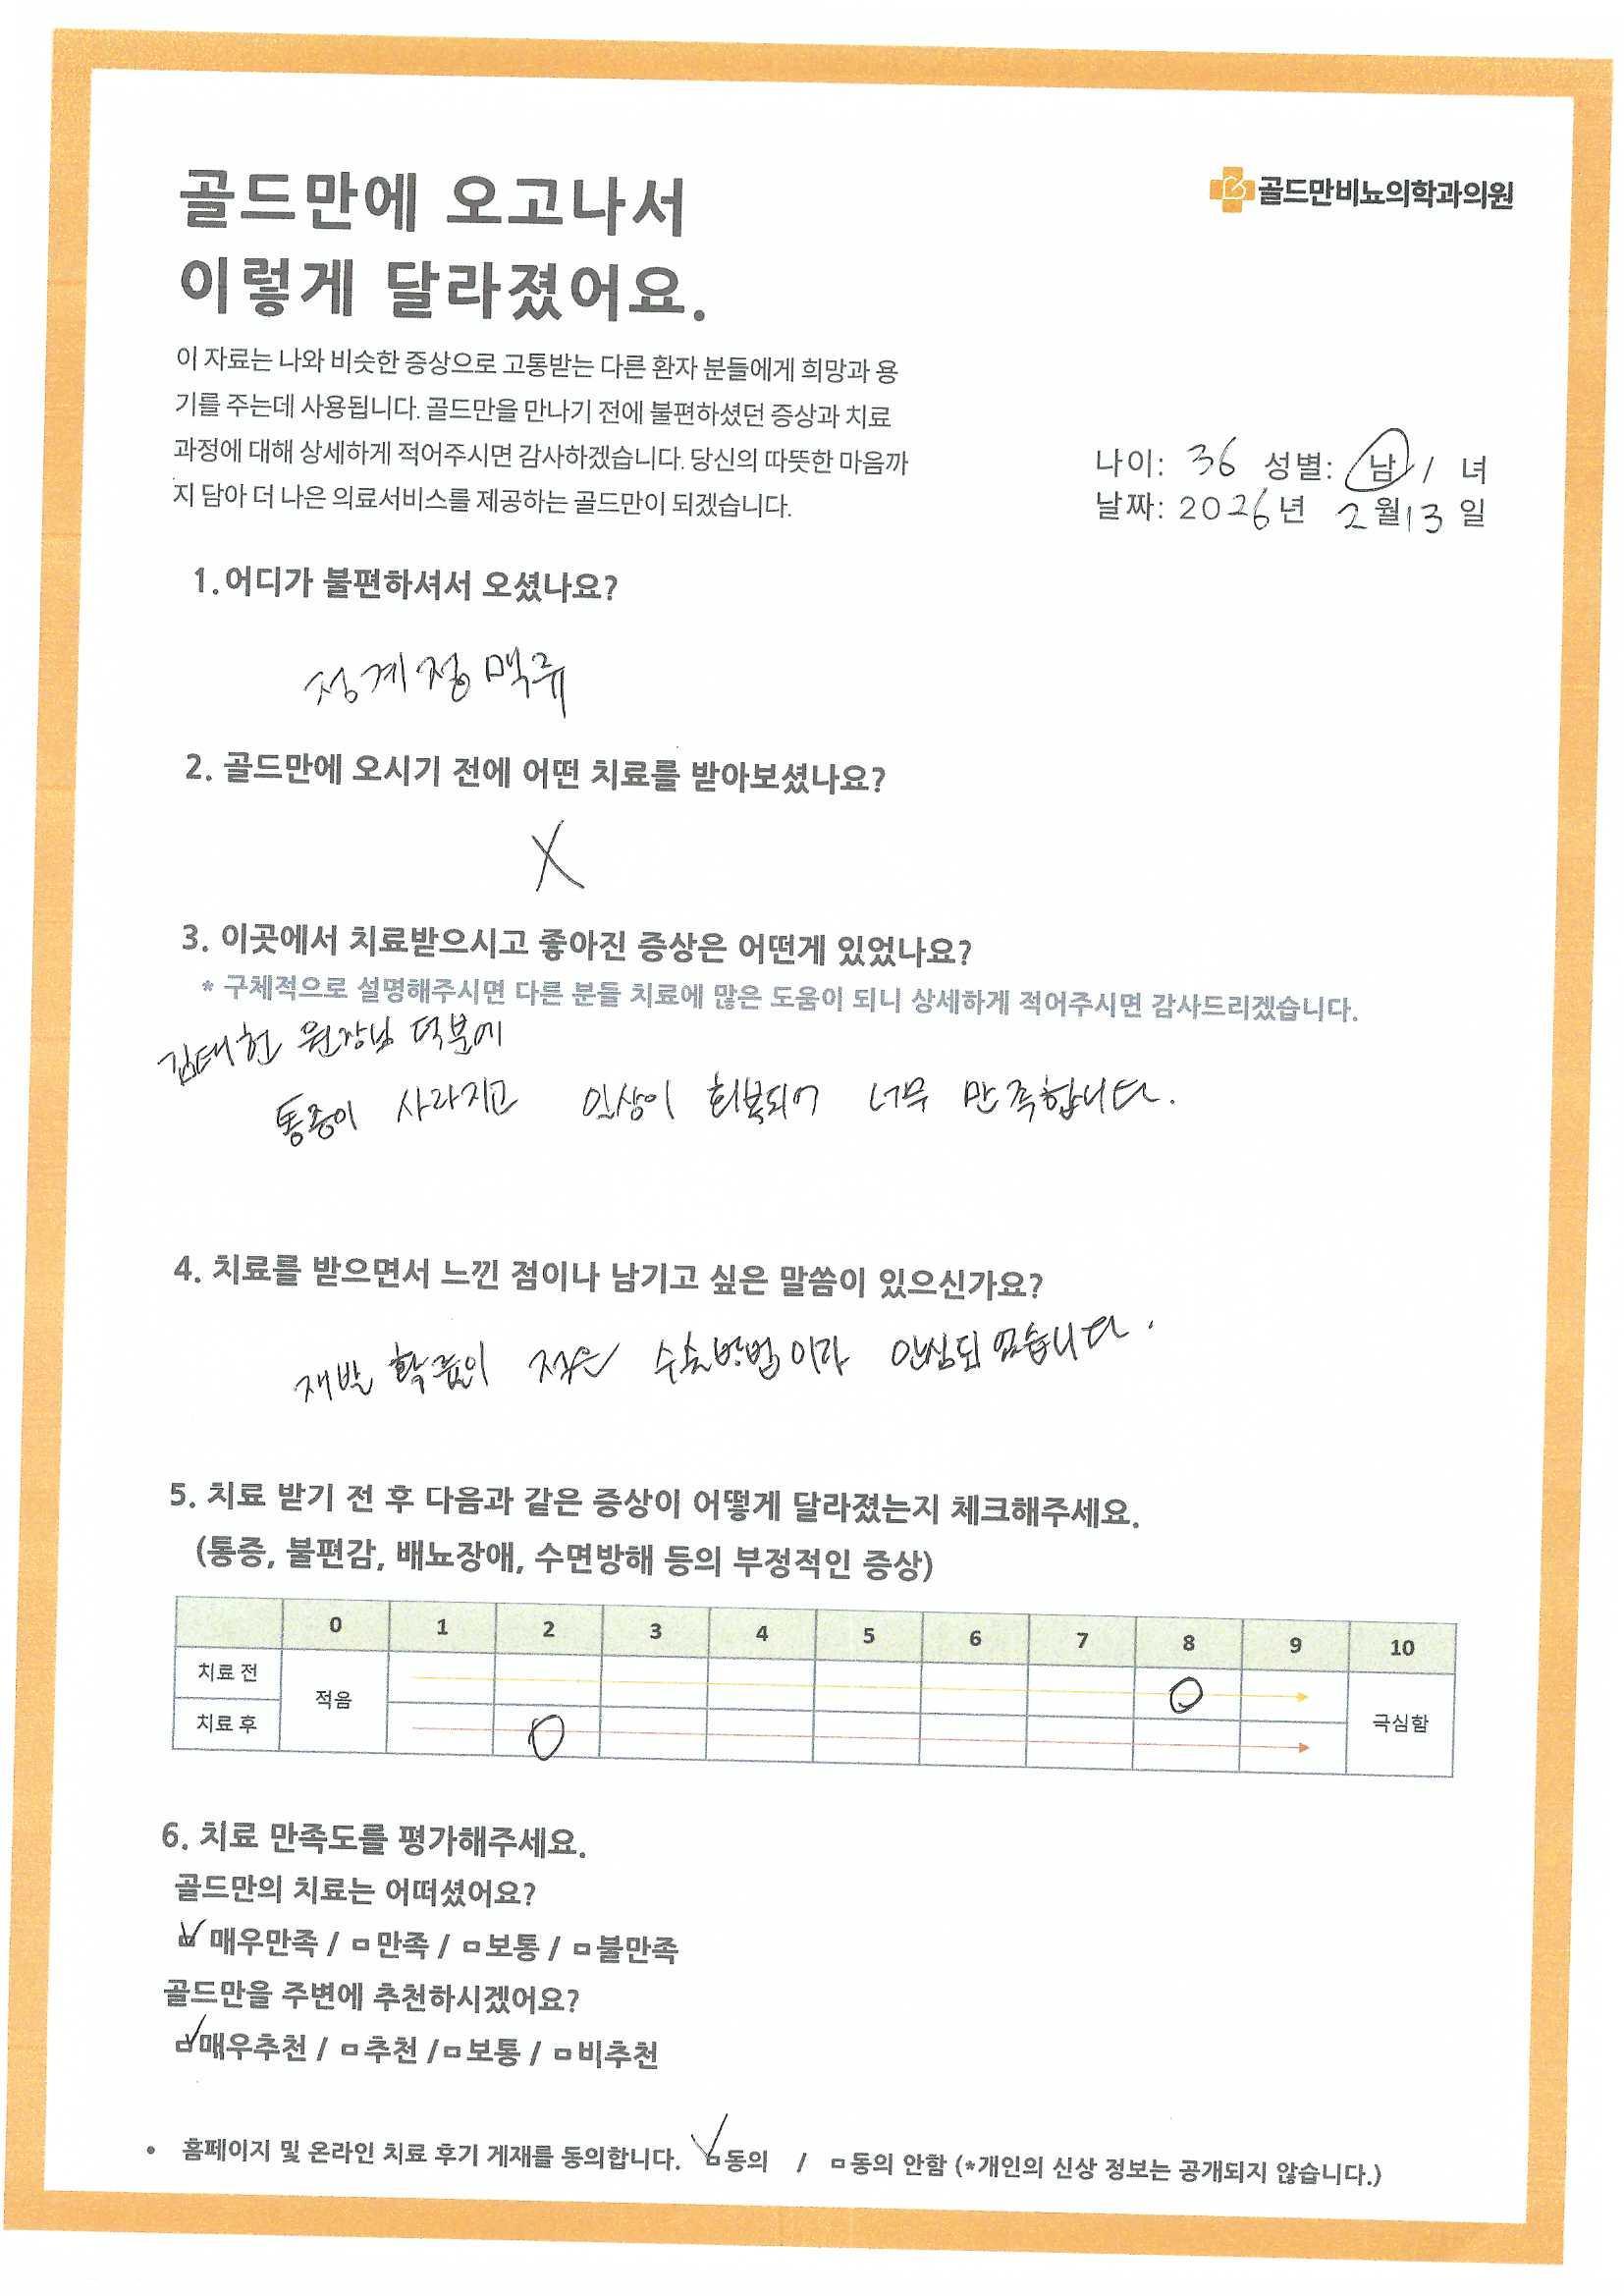 골드만에 오고나서
이렇게 달라졌어요.
골드만비뇨의학과의원
이 자료는 나와 비슷한 증상으로 고통받는 다른 환자 분들에게 희망과 용
기를 주는데 사용됩니다. 골드만을 만나기 전에 불편하셨던 증상과 치료
과정에 대해 상세하게 적어주시면 감사하겠습니다. 당신의 따뜻한 마음까
지 담아 더 나은 의료서비스를 제공하는 골드만이 되겠습니다.
나이: 36 성별: 남 / 녀
날짜: 2026년 2월 13일
1.어디가 불편하셔서 오셨나요?
정계정맥류
2. 골드만에 오시기 전에 어떤 치료를 받아보셨나요?
X
3. 이곳에서 치료받으시고 좋아진 증상은 어떤게 있었나요?
* 구체적으로 설명해주시면 다른 분들 치료에 많은 도움이 되니 상세하게 적어주시면 감사드리겠습니다.
김태헌 원장님 덕분에
통증이 사라지고 일상이 회복되어 너무 만족합니다.
4. 치료를 받으면서 느낀 점이나 남기고 싶은 말씀이 있으신가요?
재발 확률이 적은 수술방법이라 안심되었습니다.
5. 치료 받기 전 후 다음과 같은 증상이 어떻게 달라졌는지 체크해주세요.
(통증, 불편감, 배뇨장애, 수면방해 등의 부정적인 증상)
0 1 2 3 4 5 6 7 8 9 10
치료 전 적음 극심함
치료 후
6. 치료 만족도를 평가해주세요.
골드만의 치료는 어떠셨어요?
☑ 매우만족 / □ 만족 / □ 보통 / □ 불만족
골드만을 주변에 추천하시겠어요?
☑ 매우추천 / □ 추천 / □ 보통 / □ 비추천
• 홈페이지 및 온라인 치료 후기 게재를 동의합니다. ☑ 동의 / □ 동의 안함 (*개인의 신상 정보는 공개되지 않습니다.)